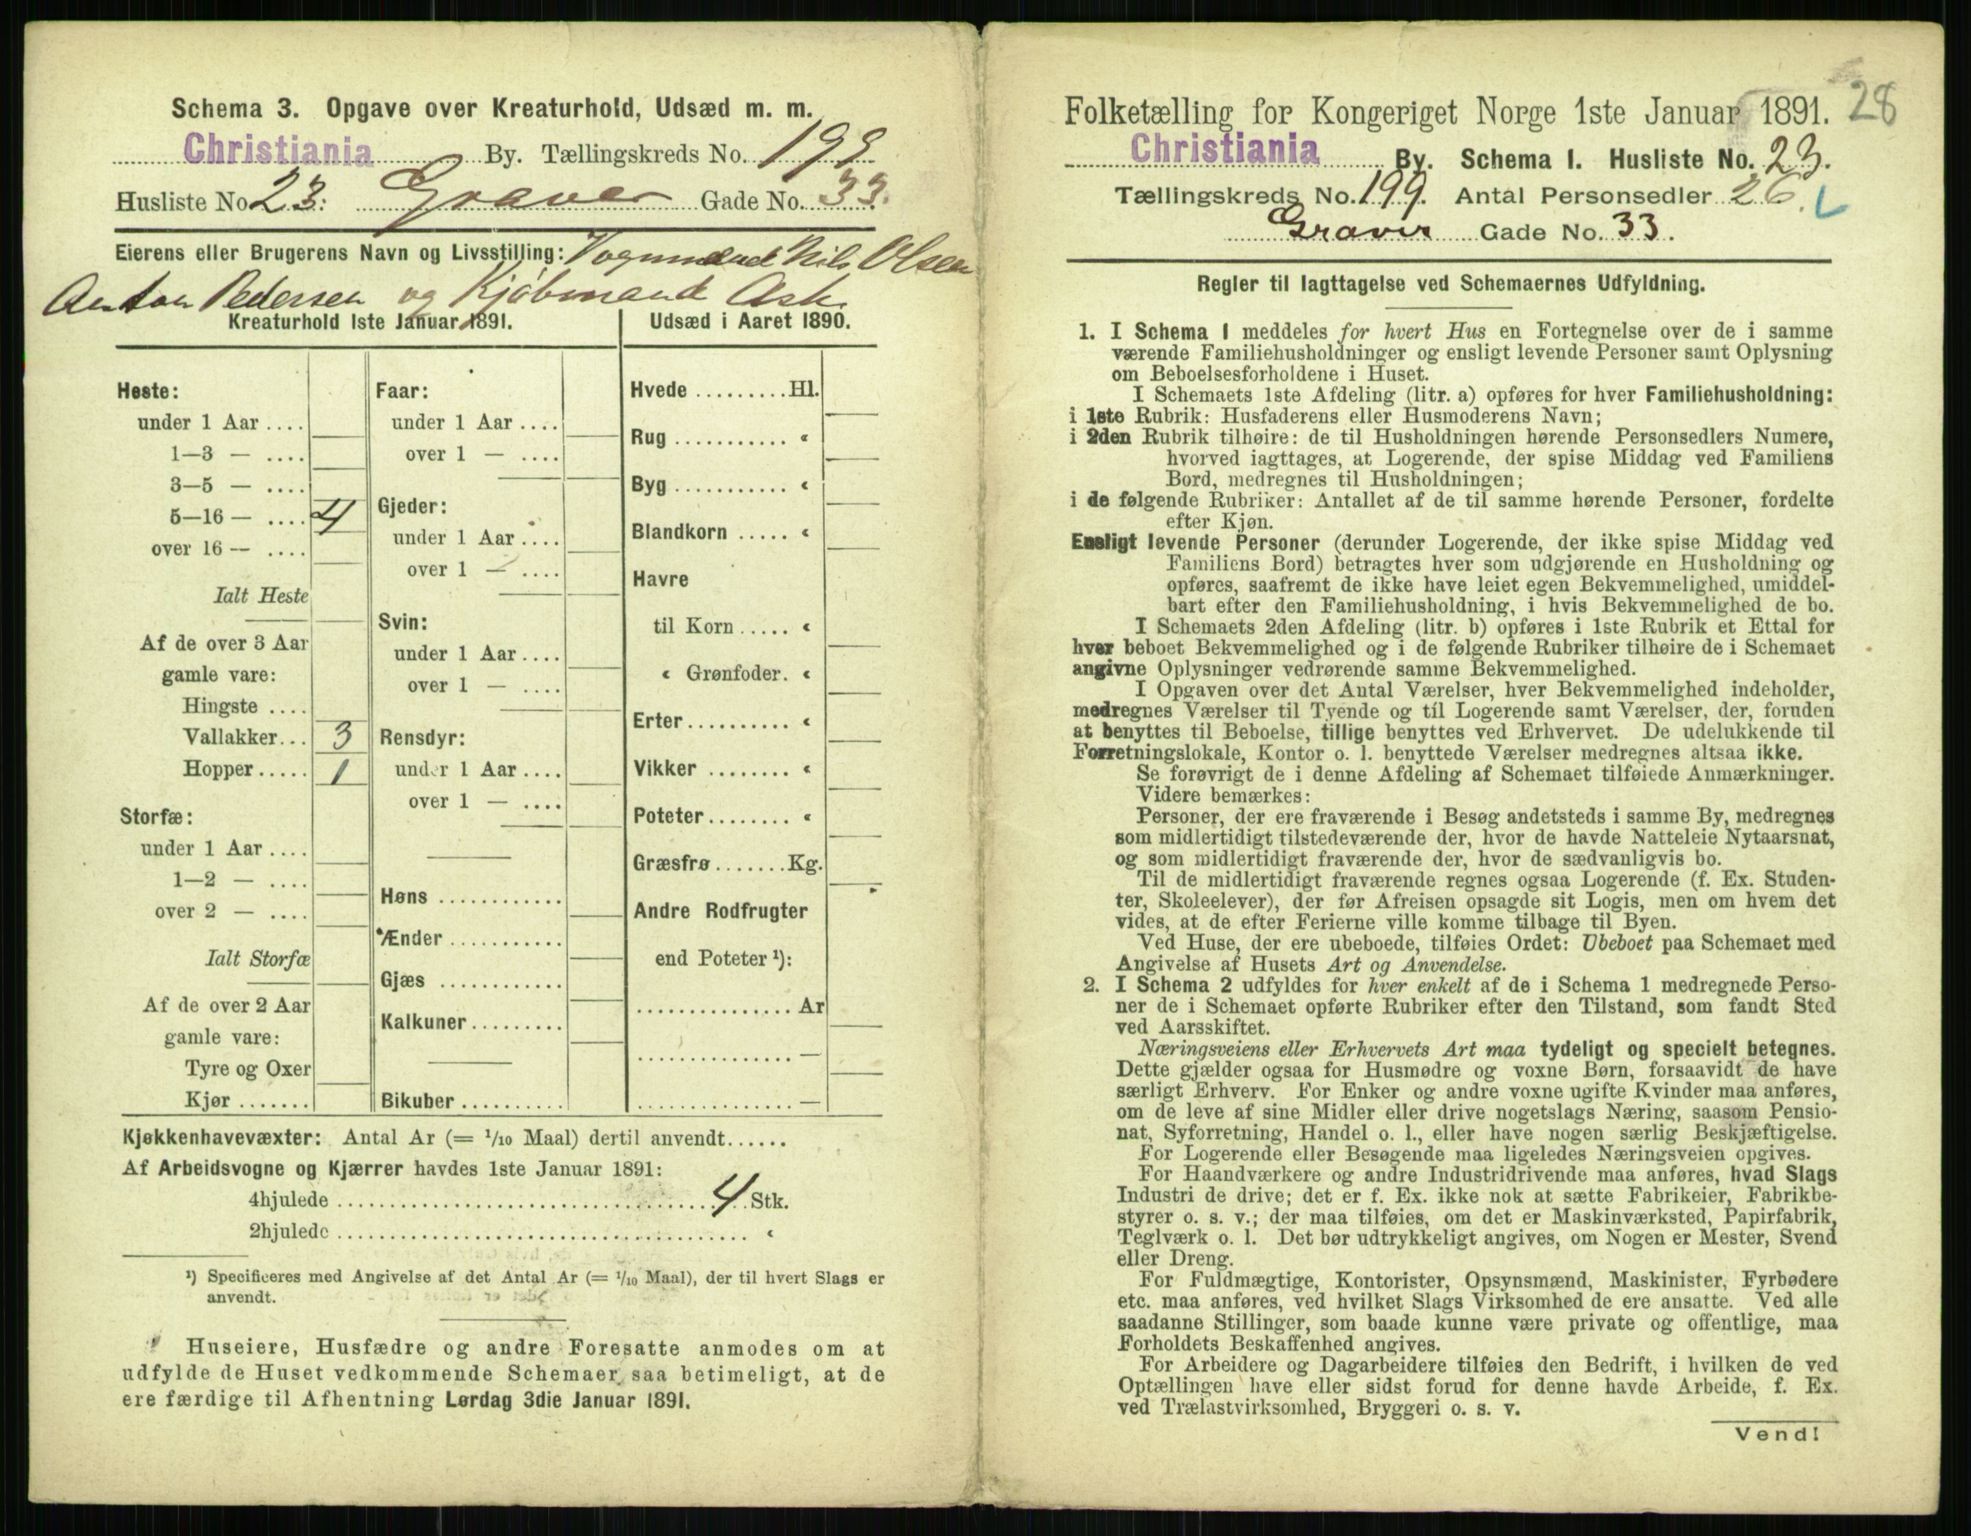 Schema 3. Opgave over Kreaturhold, Udsæd m. m.
Christiania By. Tællingskreds No. 199
Husliste No 23: Graver Gade No. 33.
Eierens eller Brugerens Navn og Livsstilling: Vognmænd Nils Olsen
Anton Pedersen og Kjøbmand Ask
Kreaturhold 1ste Januar 1891.
Heste:
under 1 Aar ....
1—3 — ....
3—5 — ....
5—16 — .... 4
over 16 — ....
Ialt Heste
Af de over 3 Aar
gamle vare:
Hingste ....
Vallakker... 3
Hopper..... 1
Storfæ:
under 1 Aar ....
1—2 — ....
over 2 — ....
Ialt Storfæ
Af de over 2 Aar
gamle vare:
Tyre og Oxer
Kjør .......
Faar:
under 1 Aar ....
over 1 — ....
Gjeder:
under 1 Aar ....
over 1 — ....
Svin:
under 1 Aar ....
over 1 — ....
Rensdyr:
under 1 Aar ....
over 1 — ....
Høns ............
Ænder...........
Gjæs ............
Kalkuner.........
Bikuber ..........
Udsæd i Aaret 1890.
Hvede .........Hl.
Rug ........... «
Byg ........... «
Blandkorn ..... «
Havre
til Korn ..... «
« Grønfoder. «
Erter.......... «
Vikker ........ «
Poteter........ «
Græsfrø .......Kg.
Andre Rodfrugter
end Poteter ¹):
...............Ar
...............—
...............—
Kjøkkenhavevæxter: Antal Ar (= 1/10 Maal) dertil anvendt......
Af Arbeidsvogne og Kjærrer havdes 1ste Januar 1891:
4hjulede .................................... 4 Stk.
2hjulede ..................................... «
¹) Specificeres med Angivelse af det Antal Ar (= 1/10 Maal), der til hvert Slags er
anvendt.
Huseiere, Husfædre og andre Foresatte anmodes om at
udfylde de Huset vedkommende Schemaer saa betimeligt, at de
ere færdige til Afhentning Lørdag 3die Januar 1891.
Folketælling for Kongeriget Norge 1ste Januar 1891. 28
Christiania By. Schema I. Husliste No. 23.
Tællingskreds No. 199. Antal Personsedler 26.
Graver Gade No. 33.
Regler til Iagttagelse ved Schemaernes Udfyldning.
1. I Schema 1 meddeles for hvert Hus en Fortegnelse over de i samme
værende Familiehusholdninger og ensligt levende Personer samt Oplysning
om Beboelsesforholdene i Huset.
I Schemaets 1ste Afdeling (litr. a) opføres for hver Familiehusholdning:
i 1ste Rubrik: Husfaderens eller Husmoderens Navn;
i 2den Rubrik tilhøire: de til Husholdningen hørende Personsedlers Numere,
hvorved iagttages, at Logerende, der spise Middag ved Familiens
Bord, medregnes til Husholdningen;
i de følgende Rubriker: Antallet af de til samme hørende Personer, fordelte
efter Kjøn.
Ensligt levende Personer (derunder Logerende, der ikke spise Middag ved
Familiens Bord) betragtes hver som udgjørende en Husholdning og
opføres, saafremt de ikke have leiet egen Bekvemmelighed, umiddel-
bart efter den Familiehusholdning, i hvis Bekvemmelighed de bo.
I Schemaets 2den Afdeling (litr. b) opføres i 1ste Rubrik et Ettal for
hver beboet Bekvemmelighed og i de følgende Rubriker tilhøire de i Schemaet
angivne Oplysninger vedrørende samme Bekvemmelighed.
I Opgaven over det Antal Værelser, hver Bekvemmelighed indeholder,
medregnes Værelser til Tyende og til Logerende samt Værelser, der, foruden
at benyttes til Beboelse, tillige benyttes ved Erhvervet. De udelukkende til
Forretningslokale, Kontor o. l. benyttede Værelser medregnes altsaa ikke.
Se forøvrigt de i denne Afdeling af Schemaet tilføiede Anmærkninger.
Videre bemærkes:
Personer, der ere fraværende i Besøg andetsteds i samme By, medregnes
som midlertidigt tilstedeværende der, hvor de havde Natteleie Nytaarsnat,
og som midlertidigt fraværende der, hvor de sædvanligvis bo.
Til de midlertidigt fraværende regnes ogsaa Logerende (f. Ex. Studen-
ter, Skoleelever), der før Afreisen opsagde sit Logis, men om hvem det
vides, at de efter Ferierne ville komme tilbage til Byen.
Ved Huse, der ere ubeboede, tilføies Ordet: Ubeboet paa Schemaet med
Angivelse af Husets Art og Anvendelse.
2. I Schema 2 udfyldes for hver enkelt af de i Schema 1 medregnede Perso-
ner de i Schemaet opførte Rubriker efter den Tilstand, som fandt Sted
ved Aarsskiftet.
Næringsveiens eller Erhvervets Art maa tydeligt og specielt betegnes.
Dette gjælder ogsaa for Husmødre og voxne Børn, forsaavidt de have
særligt Erhverv. For Enker og andre voxne ugifte Kvinder maa anføres,
om de leve af sine Midler eller drive nogetslags Næring, saasom Pensio-
nat, Syforretning, Handel o. l., eller have nogen særlig Beskjæftigelse.
For Logerende eller Besøgende maa ligeledes Næringsveien opgives.
For Haandværkere og andre Industridrivende maa anføres, hvad Slags
Industri de drive; det er f. Ex. ikke nok at sætte Fabrikeier, Fabrikbe-
styrer o. s. v.; der maa tilføies, om det er Maskinværksted, Papirfabrik,
Teglværk o. l. Det bør udtrykkeligt angives, om Nogen er Mester, Svend
eller Dreng.
For Fuldmægtige, Kontorister, Opsynsmænd, Maskinister, Fyrbødere
etc. maa anføres, ved hvilket Slags Virksomhed de ere ansatte. Ved alle
saadanne Stillinger, som baade kunne være private og offentlige, maa
Forholdets Beskaffenhed angives.
For Arbeidere og Dagarbeidere tilføies den Bedrift, i hvilken de ved
Optællingen have eller sidst forud for denne havde Arbeide, f. Ex.
ved Trælastvirksomhed, Bryggeri o. s. v.
Vend!